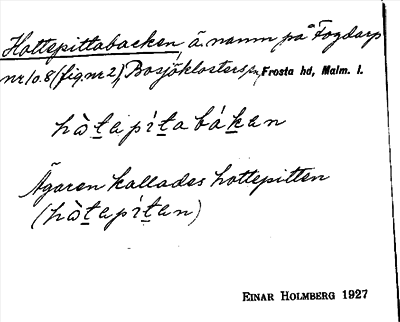 Hottepittabacken, ä. namn på Fogdarp
nr 1 o. 8 (fig. nr 2), Bosjöklosters sn, Frosta hd, Malm. l.
hàtapítabákan
Ägaren kallades hottepitten
(hàtapítan)
EINAR HOLMBERG 1927